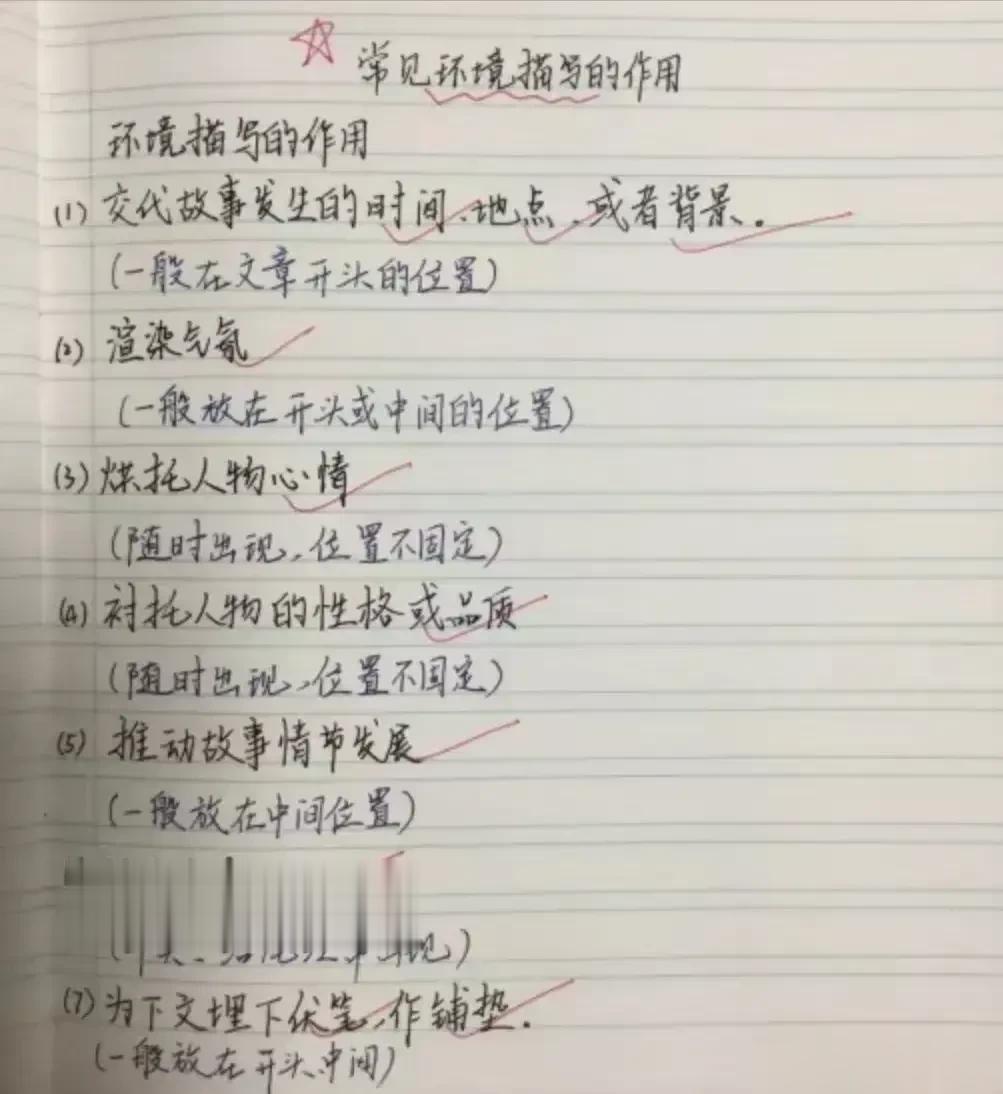 常见环境描写的作用
环境描写的作用
(1) 交代故事发生的时间、地点、或者背景.
(一般在文章开头的位置)
(2) 渲染气氛
(一般放在开头或中间的位置)
(3) 烘托人物心情
(随时出现、位置不固定)
(4) 衬托人物的性格或品质
(随时出现、位置不固定)
(5) 推动故事情节发展
(一般放在中间位置)
现)
(7) 为下文埋下伏笔、作铺垫.
(一般放在开头.中间)